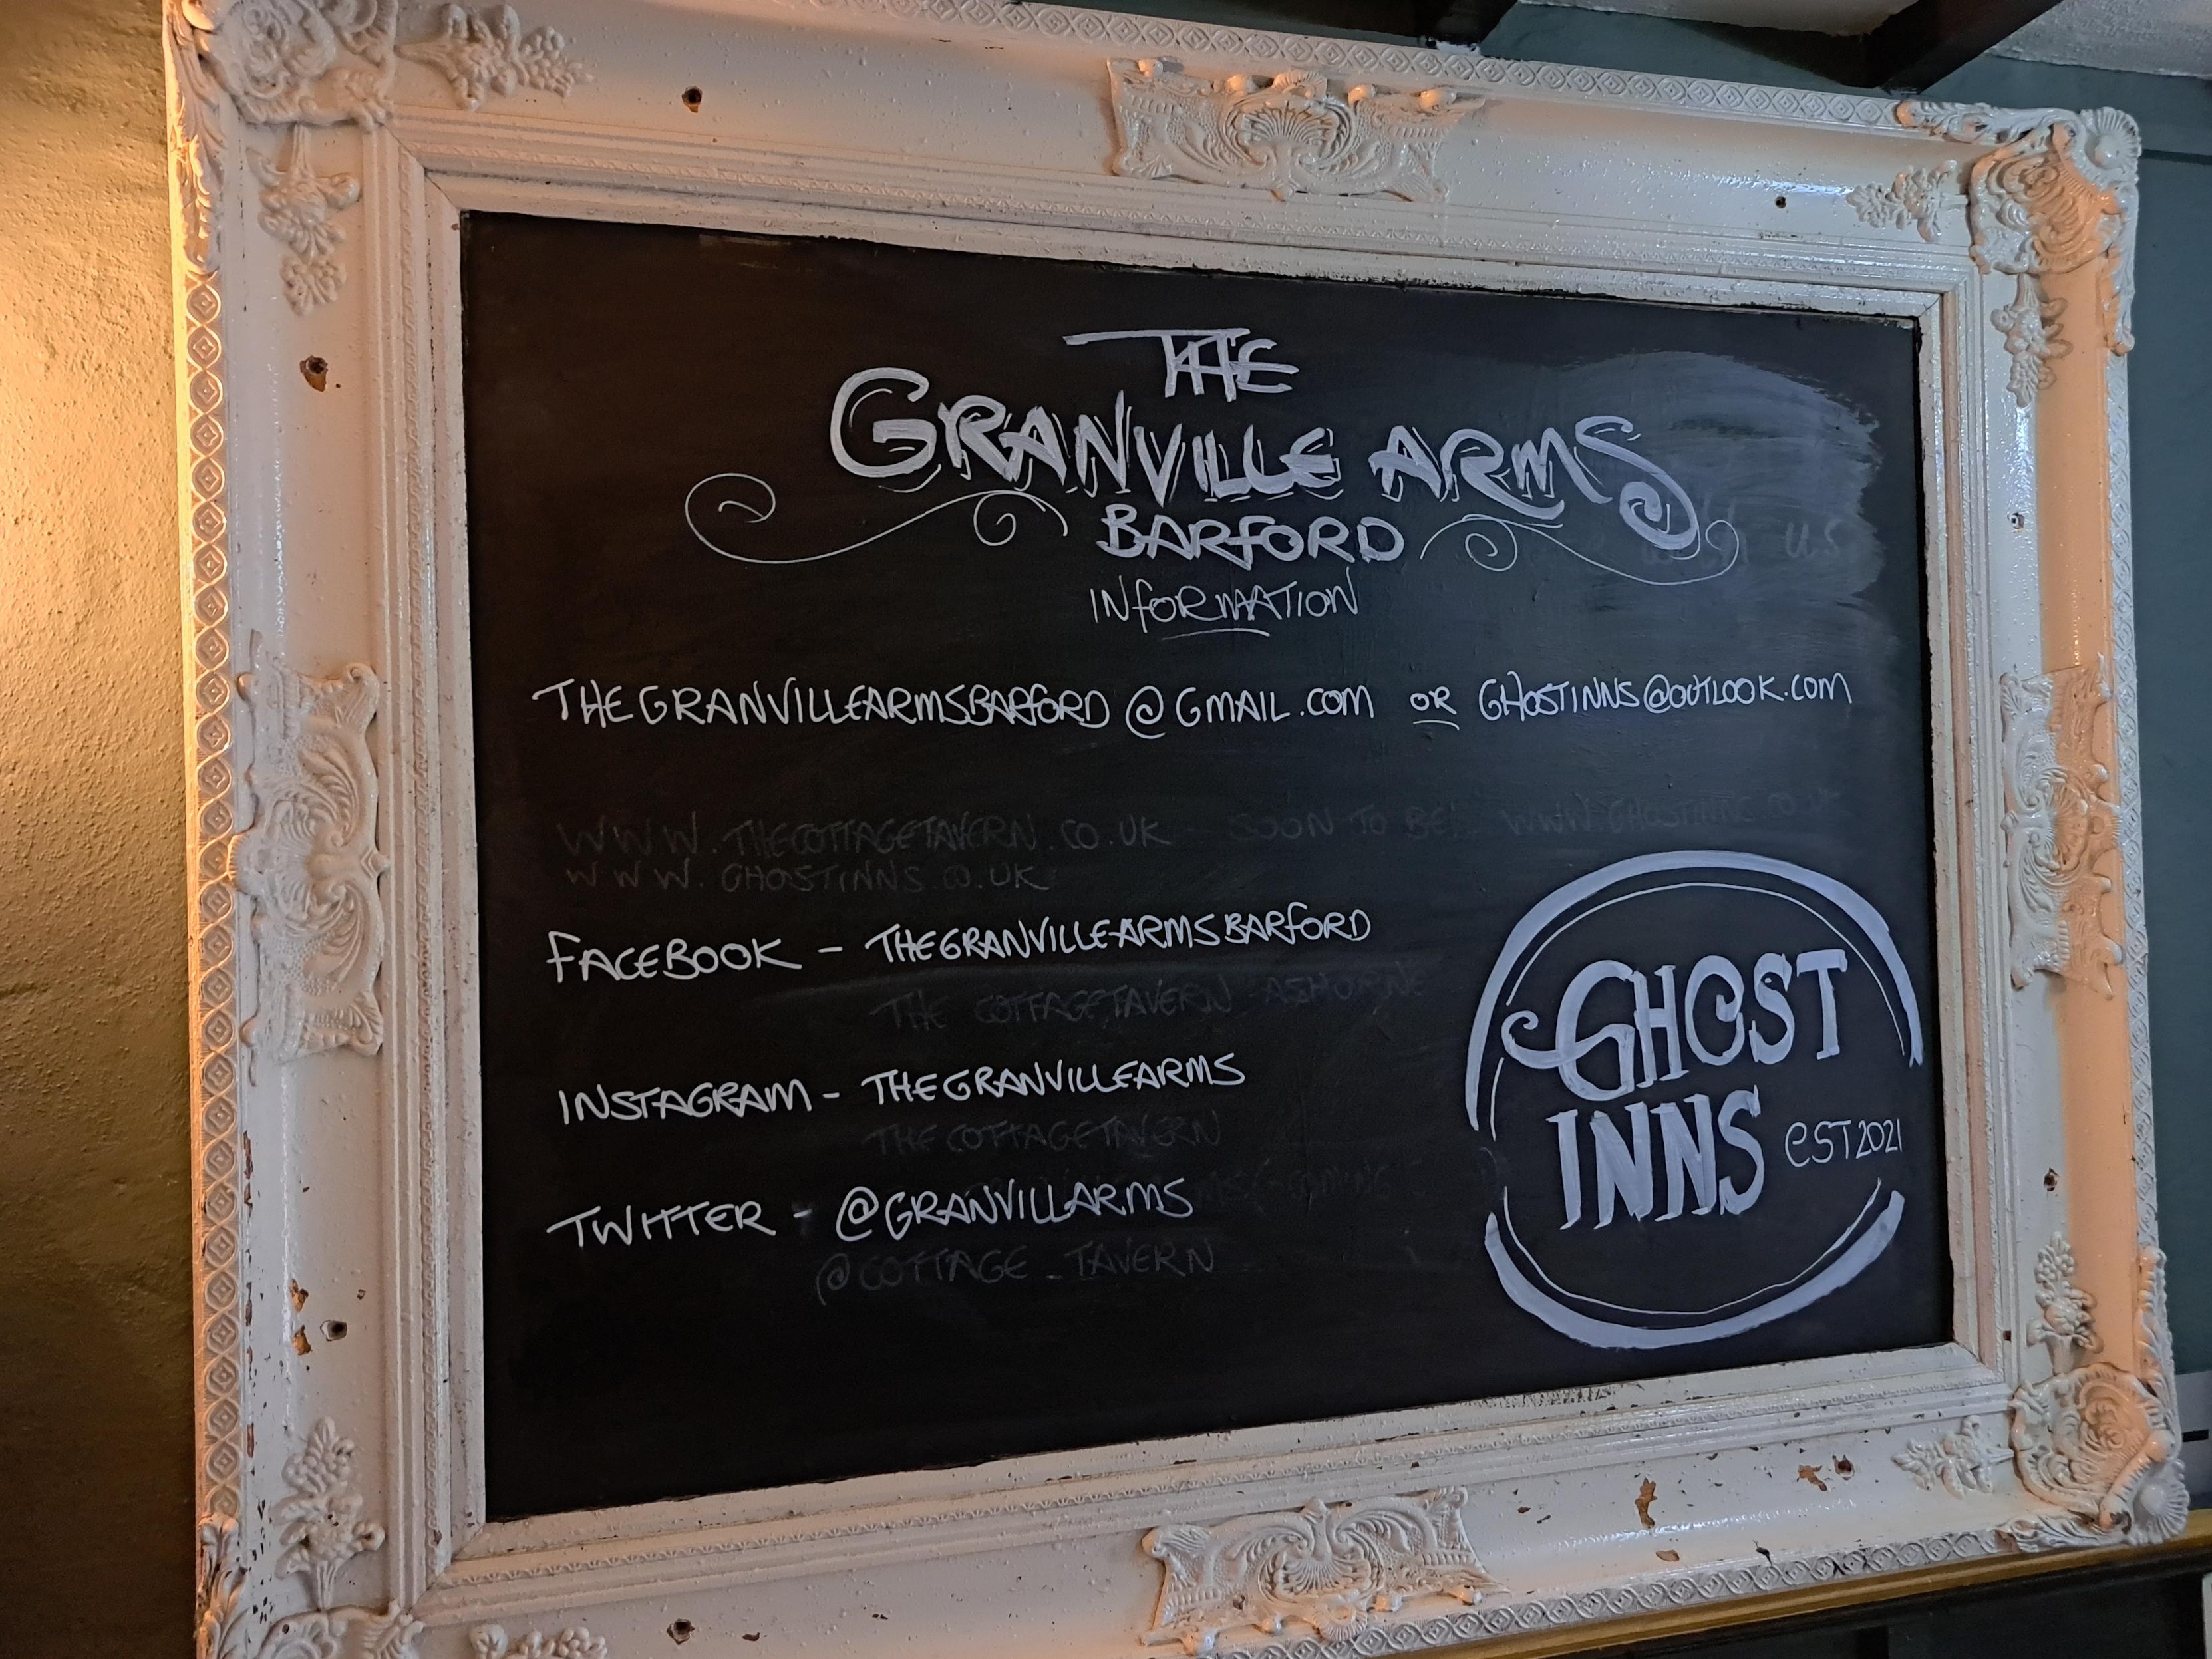 THE
GRANVILLE ARMS
BARFORD
INFORMATION
US
THEGRANVILLEARMSBARFORD@GMAIL.COM OR GHOSTINNS@OUTLOOK.COM
WWW.THECOTTAGETAVERN.CO.UK SOON TO BE
WWW.GHOSTINNS.CO.UK
FACEBOOK - THEGRANVILLEARMSBARFORD
THE COTTAGETAVERN ASHORNE
INSTAGRAM - THEGRANVILLEARMS
THECOTTAGETAVERN
TWITTER - @GRANVILLARMS
@COTTAGE_TAVERN
GHOST
INNS EST 2021